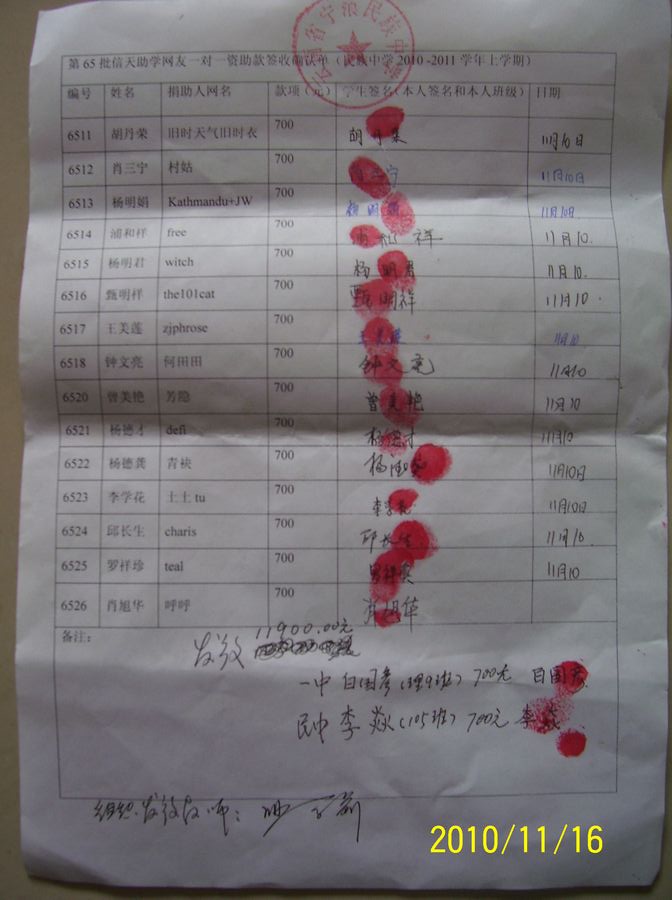 云南省宁蒗民族中学
第65批信天助学网友一对一资助款签收确认单(民族中学2010-2011学年上学期)
编号 姓名 捐助人网名 款项(元) 学生签名(本人签名和本人班级) 日期
6511 胡丹荣 旧时天气旧时衣 700 胡丹荣 11月10日
6512 肖三宁 村姑 700 肖三宁 11月10日
6513 杨明娟 Kathmandu+JW 700 杨明娟 11月10日
6514 浦和样 free 700 浦和祥 11月10.
6515 杨明君 witch 700 杨明君 11月10.
6516 甄明样 the101cat 700 甄明祥 11月10.
6517 王美莲 zjphrose 700 王美莲 11月10
6518 钟文亮 何田田 700 钟文亮 11月10
6520 曾美艳 芳隐 700 曾美艳 11月10
6521 杨德才 defi 700 杨德才 11月10
6522 杨德龚 青袂 700 杨德龚 11月10日
6523 李学花 土土tu 700 李学花 11月10日
6524 邱长生 charis 700 邱长生 11月10.
6525 罗样珍 teal 700 11月10
6526 肖旭华 呼呼 700 肖旭华
备注:
发放 11900.00元
一中 白国彦(理9班) 700元 白国彦
民中 李焱(105班) 700元 李焱
组织发放教师:
2010/11/16